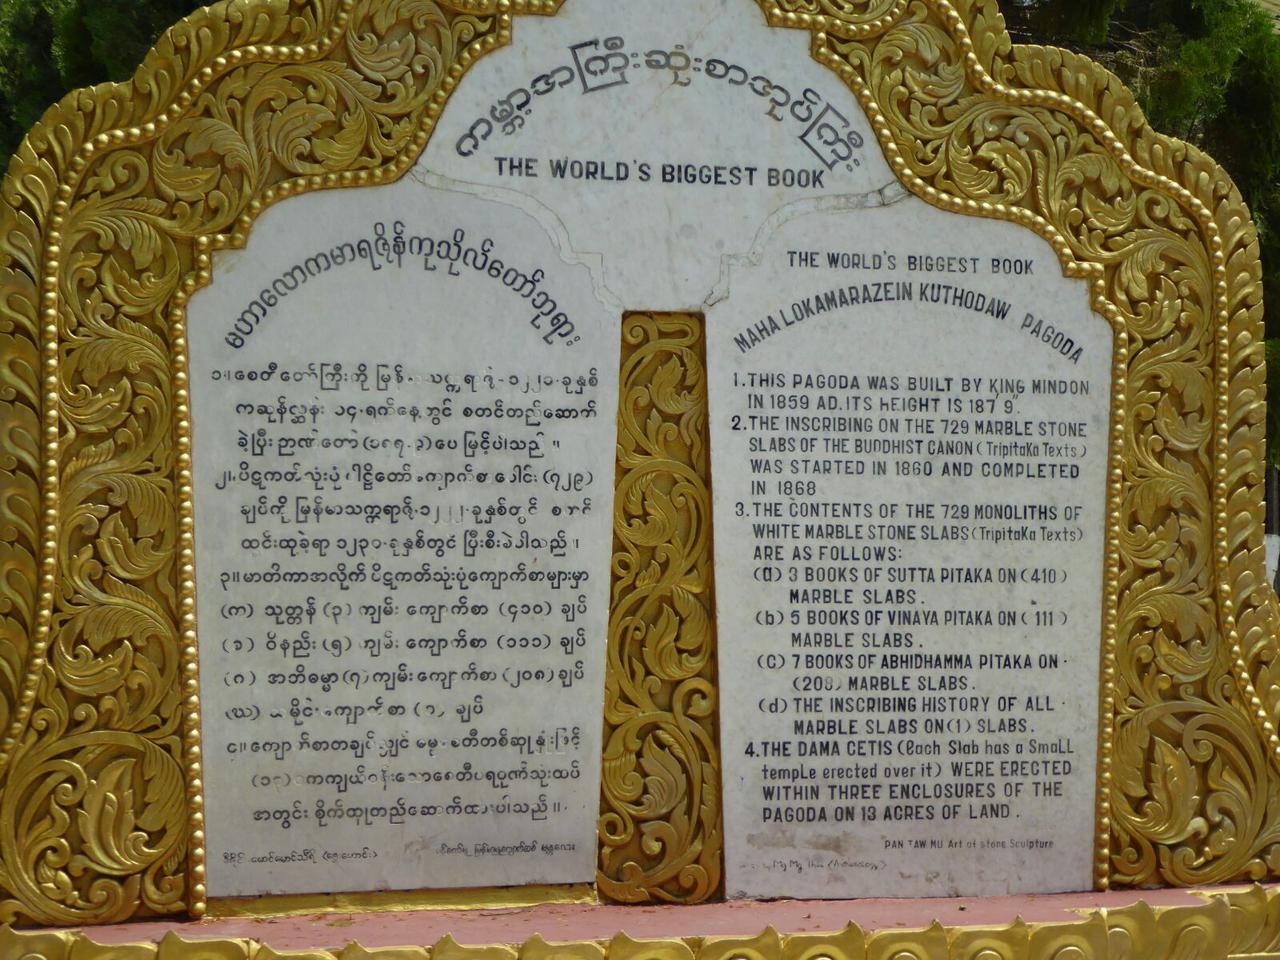 ကမ္ဘာ့အကြီးဆုံးစာအုပ်ကြီး
THE WORLD'S BIGGEST BOOK
မဟာလောကမာရဇိန်ကုသိုလ်တော်ဘုရား
၁။ စေတီတော်ကြီးကို မြန် ၁၂၂၁ ခုနှစ်
ကဆုန်လ္ဆန်း ၁၄ ရက်နေ့တွင် စတင်တည်ဆောက်
ခဲ့ပြီး ဉာဏ်တော် ပေ မြင့်ပါသည်။
၂။ ပိဋကတ်သုံးပုံ ပါဠိတော် ကျောက်စာ ပေါင်း (၇၂၉)
ချပ်ကို မြန်မာသက္ကရာဇ် ၁၂၂၂ ခုနှစ်တွင်
ထွင်းထုခဲ့ရာ ၁၂၃၀ ခုနှစ်တွင် ပြီးစီးခဲ့ပါသည်။
၃။ မာတိကာအလိုက် ပိဋကတ်သုံးပုံကျောက်စာများမှာ
(က) သုတ္တန် (၃) ကျမ်း ကျောက်စာ (၄၁၀) ချပ်
(ခ) ဝိနည်း (၅) ကျမ်း ကျောက်စာ (၁၁၁) ချပ်
(ဂ) အဘိဓမ္မာ (၇) ကျမ်း ကျောက်စာ (၂၀၈) ချပ်
(ဃ) ကျောက်စာ (၁) ချပ်
၄။ ကျောက်စာတချပ်လျှင်
(၁၃) ဧကကျယ်ဝန်းသော စေတီပရဝုဏ်သုံးထပ်
အတွင်း စိုက်ထူတည်ဆောက်ထားပါသည်။
THE WORLD'S BIGGEST BOOK
MAHA LOKAMARAZEIN KUTHODAW PAGODA
1. THIS PAGODA WAS BUILT BY KING MINDON
IN 1859 AD. ITS HEIGHT IS 187' 9".
2. THE INSCRIBING ON THE 729 MARBLE STONE
SLABS OF THE BUDDHIST CANON (TripitaKa Texts)
WAS STARTED IN 1860 AND COMPLETED
IN 1868
3. THE CONTENTS OF THE 729 MONOLITHS OF
WHITE MARBLE STONE SLABS (TripitaKa Texts)
ARE AS FOLLOWS:
(a) 3 BOOKS OF SUTTA PITAKA ON (410)
MARBLE SLABS.
(b) 5 BOOKS OF VINAYA PITAKA ON (111)
MARBLE SLABS.
(C) 7 BOOKS OF ABHIDHAMMA PITAKA ON
(208) MARBLE SLABS.
(d) THE INSCRIBING HISTORY OF ALL
MARBLE SLABS ON (1) SLABS.
4. THE DAMA CETIS (Each Slab has a Small
temple erected over it) WERE ERECTED
WITHIN THREE ENCLOSURES OF THE
PAGODA ON 13 ACRES OF LAND.
PAN TAW MU Art of stone Sculpture